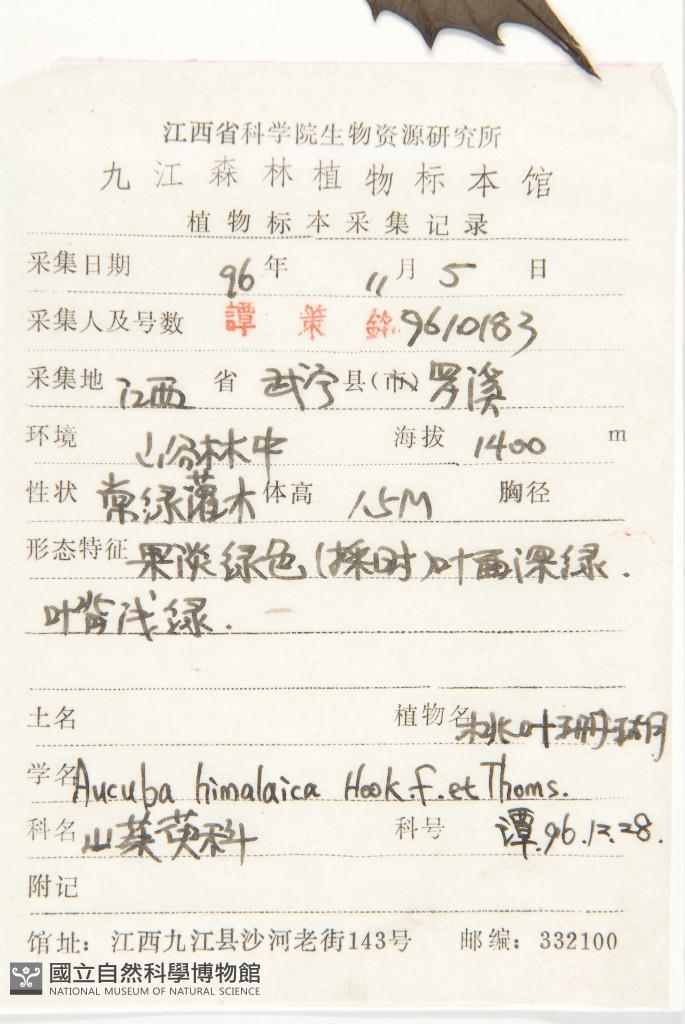 江西省科学院生物资源研究所
九江森林植物标本馆
植物标本采集记录
采集日期 96年 11月 5 日
采集人及号数 譚策銘 9610183
采集地 江西 省 武宁县(市) 罗溪
环境 山谷林中 海拔 1400 m
性状 常绿灌木 体高 1.5M 胸径
形态特征 果淡绿色(採时)叶面深绿.
叶背浅绿.
土名 植物名 桃叶珊瑚
学名 Aucuba himalaica Hook.f. et Thoms.
科名 山茱萸科 科号 譚.96.12.28.
附记
馆址: 江西九江县沙河老街143号 邮编: 332100
國立自然科學博物館
NATIONAL MUSEUM OF NATURAL SCIENCE